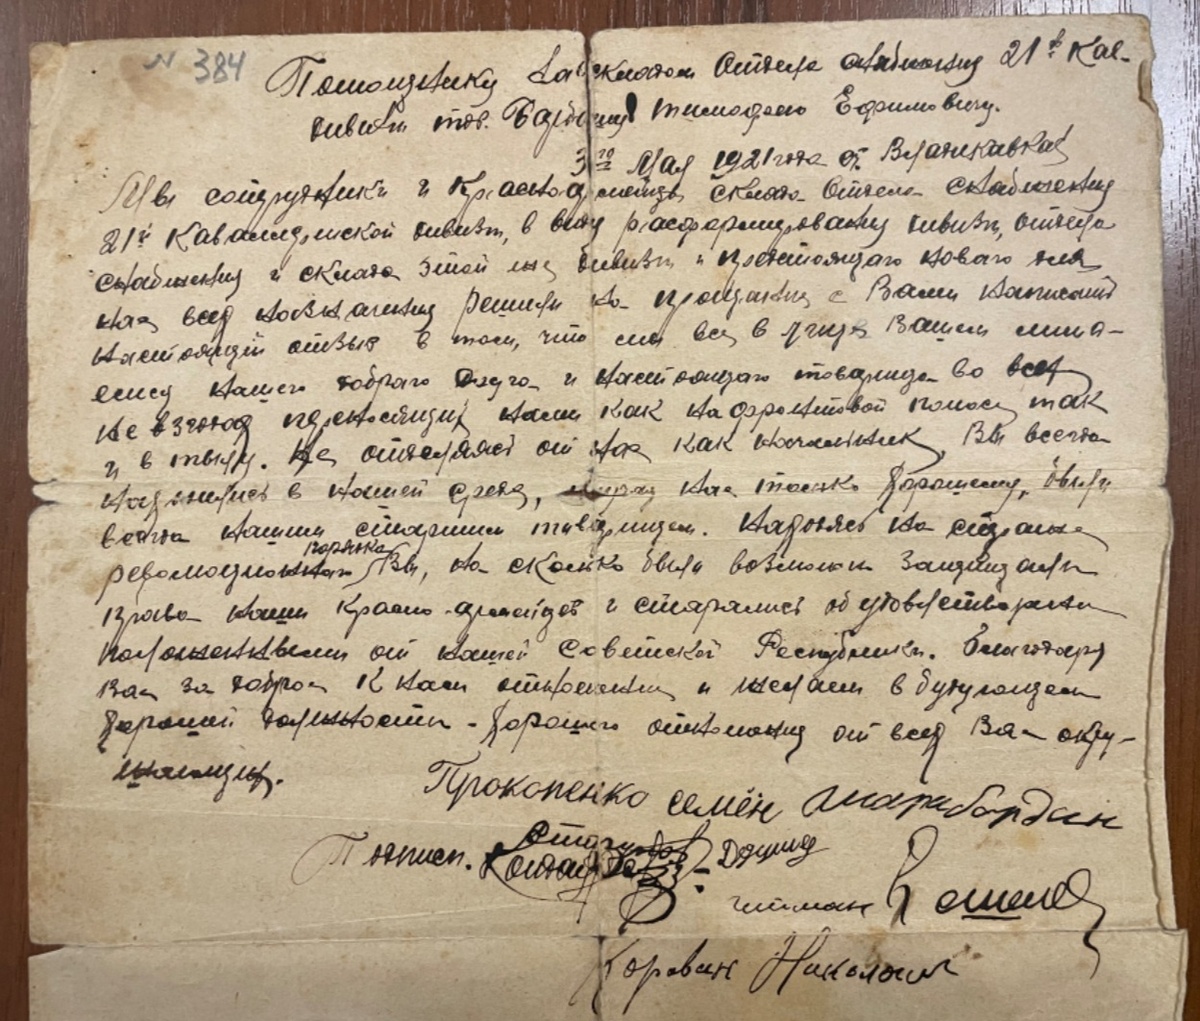 № 384
Помощнику Завскладом Отдела снабжения 21й Кав-
дивизии тов. Тимофею Ефимовичу.
3го Мая 1921 года г. Владикавказ
Мы сотрудники и Красноармейцы склада Отдела снабжения
21й Кавалерийской дивизии, в виду расформирования дивизии, отдела
снабжения и склада этой же дивизии и предстоящаго новаго для
нас всех назначения решили на прощание с Вами написать
настоящий отзыв в том, что мы все в лице Вашем лиша-
емся нашего добраго друга и настоящаго товарища во всех
невзгодах переносящих нами как на фронтовой полосе так
и в тылу. Не отделяясь от нас как начальник, Вы всегда
находились в нашей среде, нас только хорошему, были
всегда нашим старшим товарищем. Находясь на страже
порядка
революционнаго Вы, на сколько были возможны защищали
права наши красно-армейцев и старались об удовлетворении
положенными от нашей Советской Республики. Благодаря
Вас за доброе к нам отношение и желаем в будущем
хорошей должности - хорошего отношения от всех Вас окру-
жающих.
Прокопенко семён
Подписи.
Корован Николай